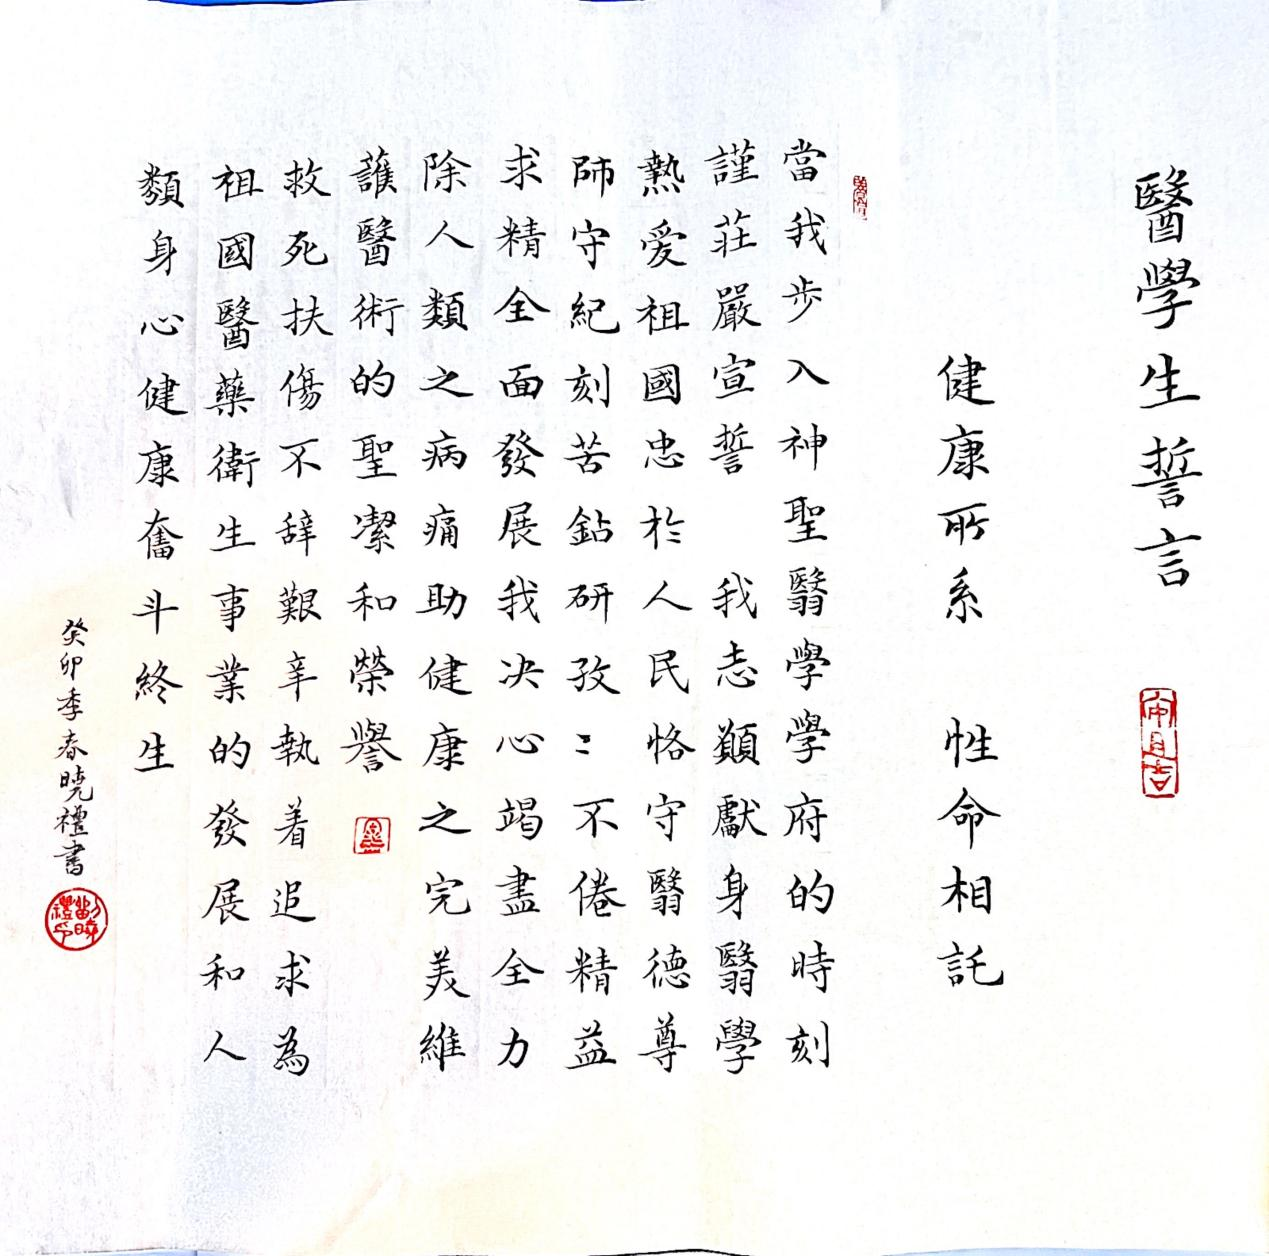 醫學生誓言
健康所系 性命相託
當我步入神聖醫學學府的時刻
謹莊嚴宣誓 我志願獻身醫學
熱愛祖國忠於人民恪守醫德尊
師守紀刻苦鉆研孜〻不倦精益
求精全面發展我决心竭盡全力
除人類之病痛助健康之完美維
護醫術的聖潔和榮譽
救死扶傷不辞艱辛執着追求為
祖國醫藥衛生事業的發展和人
類身心健康奮斗終生
癸卯季春曉禮書